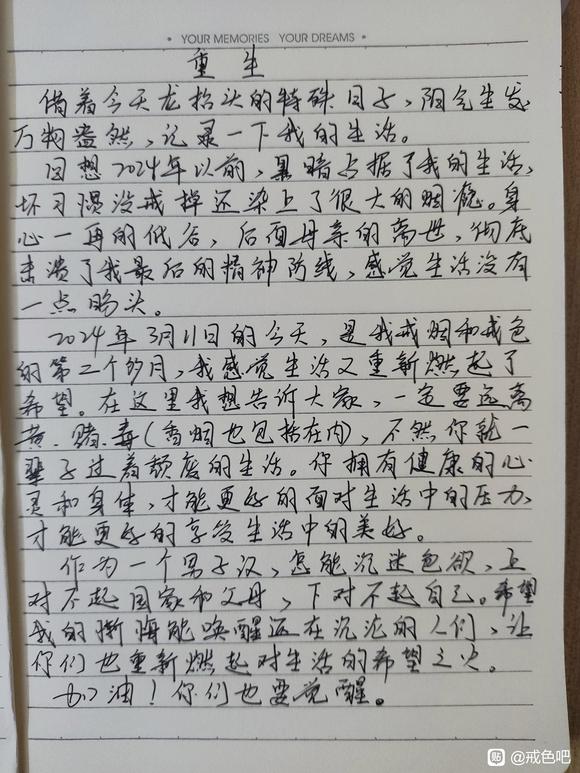 • YOUR MEMORIES YOUR DREAMS •
重生
借着今天龙抬头的特殊日子,阳气生发
万物盎然,记录一下我的生活。
回想2024年以前,黑暗占据了我的生活,
坏习惯没戒掉还染上了很大的烟瘾。身
心一再的低谷,后面母亲的离世,彻底
击溃了我最后的精神防线,感觉生活没有
一点盼头。
2024年3月11日的今天,是我戒烟和戒色
的第二个多月,我感觉生活又重新燃起了
希望。在这里我想告诉大家,一定要远离
黄、赌、毒(香烟也包括在内),不然你就一
辈子过着颓废的生活。你拥有健康的心
灵和身体,才能更好的面对生活中的压力,
才能更好的享受生活中的美好。
作为一个男子汉,怎能沉迷色欲,上
对不起国家和父母,下对不起自己。希望
我的忏悔能唤醒还在沉沦的人们,让
你们也重新燃起对生活的希望之火。
加油!你们也要觉醒。
贴 @戒色吧